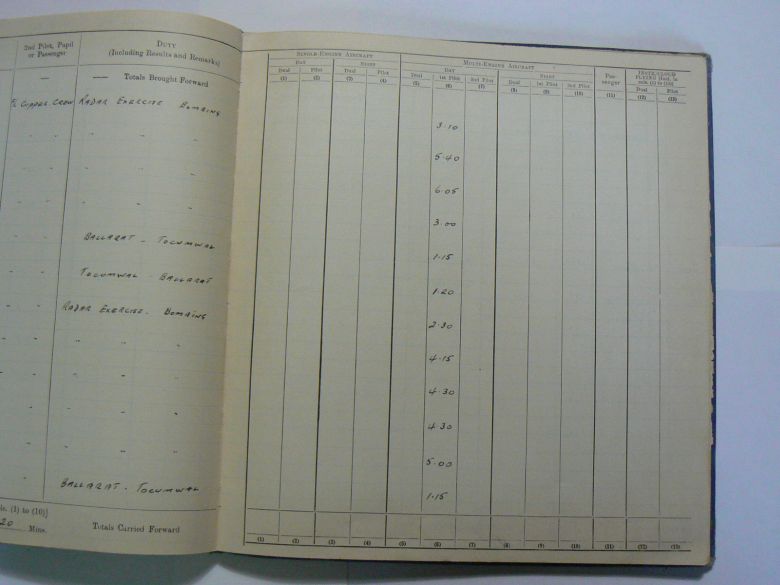 2nd Pilot, Pupil
or Passenger
DUTY
(Including Results and Remarks)
— —— Totals Brought Forward
CREW RADAR EXERCISE BOMBING
" " "
" " "
" " "
BALLARAT - TOCUMWAL
" " TOCUMWAL - BALLARAT
RADAR EXERCISE - BOMBING
" " "
" " "
" " "
" " "
" " "
BALLARAT - TOCUMWAL
(1) to (10)]
20 Mins. Totals Carried Forward
SINGLE-ENGINE AIRCRAFT MULTI-ENGINE AIRCRAFT Pas-
senger INSTR/CLOUD
FLYING
DAY NIGHT DAY NIGHT
Dual Pilot Dual Pilot Dual 1st Pilot 2nd Pilot Dual 1st Pilot 2nd Pilot Dual Pilot
(1) (2) (3) (4) (5) (6) (7) (8) (9) (10) (11) (12) (13)
3·10
5·40
6·05
3·00
1·15
1·20
2·30
4·15
4·30
4·30
5·00
1·15
(1) (2) (3) (4) (5) (6) (7) (8) (9) (10) (11) (12) (13)